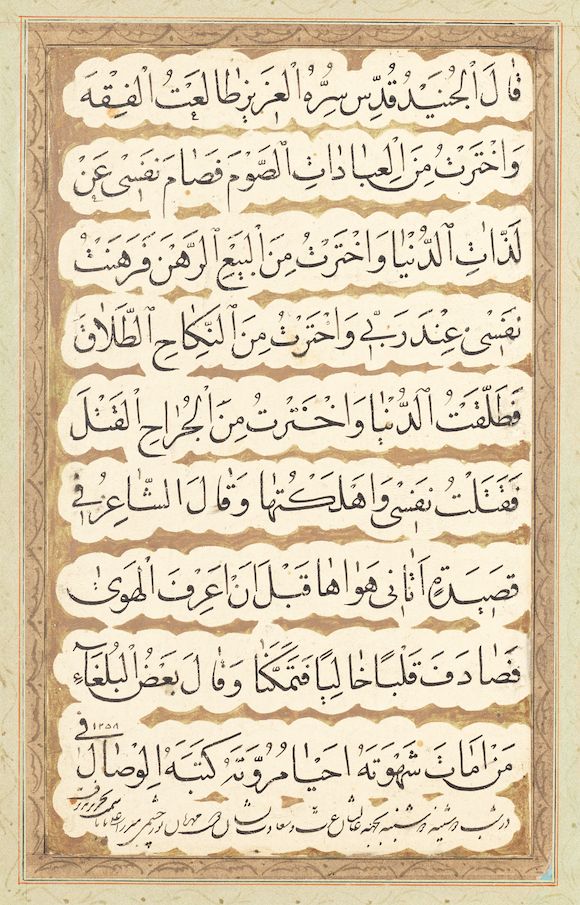 قَالَ الْجُنَيْدُ قُدِّسَ سِرُّهُ الْعَزِيزِ طَالَعْتُ الْفِقْهَ
وَاخْتَرْتُ مِنَ الْعِبَادَاتِ الصَّوْمَ فَصَامَ نَفْسِي عَنْ
لَذَّاتِ الدُّنْيَا وَاخْتَرْتُ مِنَ الْبَيْعِ الرَّهْنَ فَرَهَنْتُ
نَفْسِي عِنْدَ رَبِّي وَاخْتَرْتُ مِنَ النِّكَاحِ الطَّلَاقَ
فَطَلَّقْتُ الدُّنْيَا وَاخْتَرْتُ مِنَ الْجُرَاحِ الْقَتْلَ
فَقَتَلْتُ نَفْسِي وَاَهْلَكْتُهَا وَقَالَ الشَّاعِرُ فِي
قَصِيدَةِهِ اَتَانِي هَوَاهَا قَبْلَ اَنْ اَعْرِفَ الْهَوَى
فَصَادَفَ قَلْبًا خَالِيًا فَتَمَكَّنَا وَقَالَ بَعْضُ الْبُلَغَاءِ
مَنْ اَمَاتَ شَهْوَتَهُ اَحْيَا مُرُوَّتَهُ كَتَبَهُ الْوِصَالُ فِي ١٢٥٨